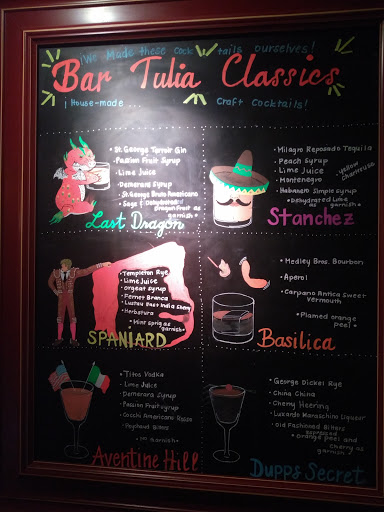 ¡We Made these cock tails ourselves!
Bar Tulia Classics
¡House-made ... Craft Cocktails!
• St. George Terroir Gin
• Passion Fruit Syrup
• Lime Juice
• Demerara Syrup
• St. George Bruto Americano
• Sage & Dehydrated
Dragonfruit as
garnish *
Last Dragon
• Milagro Reposado Tequila
• Peach Syrup
• Lime Juice
• Montenegro
• yellow
chartreuse
• Habanero Simple Syrup
• Dehydrated Lime
as garnish *
Stanchez
• Templeton Rye
• Lime Juice
• Orgeat Syrup
• Fernet Branca
• Lustau Pass India Sherry
• Herbstura
• Mint sprig as
garnish *
SPANIARD
• Medley Bros. Bourbon
• Aperol
• Carpano Antica Sweet
Vermouth
• Flamed orange
peel *
Basilica
• Titos Vodka
• Lime Juice
• Demerara Syrup
• Passion Fruit Syrup
• Cocchi Americano Rosso
• Peychaud Bitters
garnish *
Aventine Hill
• George Dickel Rye
• China China
• Cherry Heering
• Luxardo Maraschino Liqueur
• Old Fashioned Bitters
• expressed
orange peel and
cherry as
garnish *
Dupps Secret